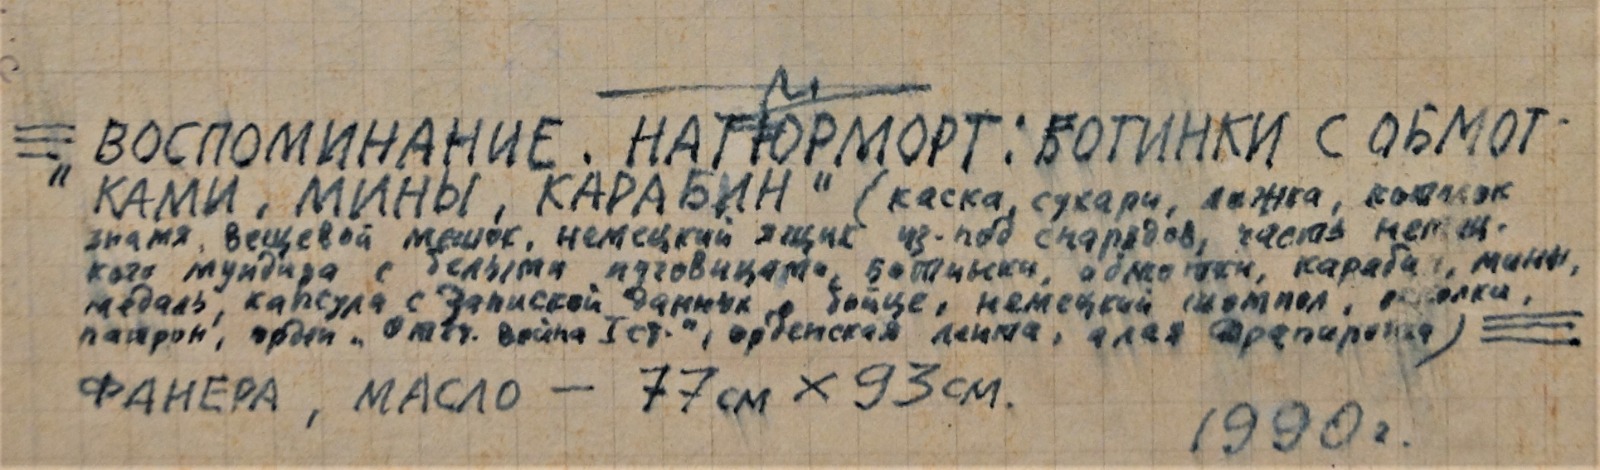 ВОСПОМИНАНИЕ. НАТЮРМОРТ: БОТИНКИ С ОБМОТ-
"КАМИ, МИНЫ, КАРАБИН" (каска, сухари, ложка, котелок
знамя, вещевой мешок, немецкий ящик из-под снарядов, часть немец-
кого мундира с белыми пуговицами, ботинки, обмотки, карабин, мины,
медаль, капсула с запиской данных о бойце, немецкий шомпол, осколки,
патрон, орден „Отеч. война I ст.", орденская лента, алая драпировка)
ФАНЕРА, МАСЛО — 77см × 93см.
1990г.